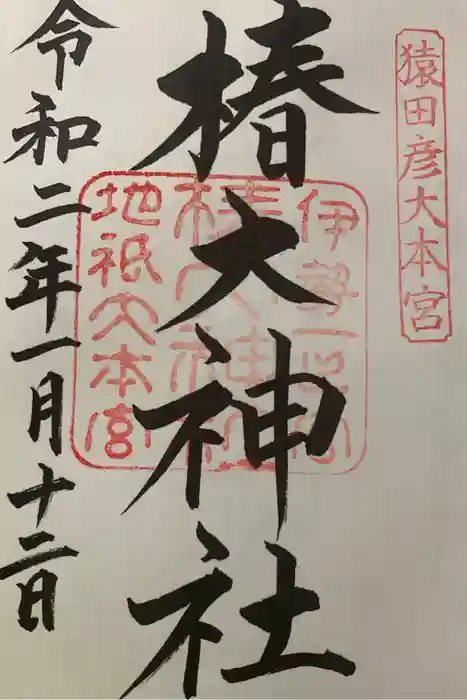 猿田彦大本宮
椿大神社
伊勢一之宮
椿大神社
地祇大本宮
令和二年一月十二日